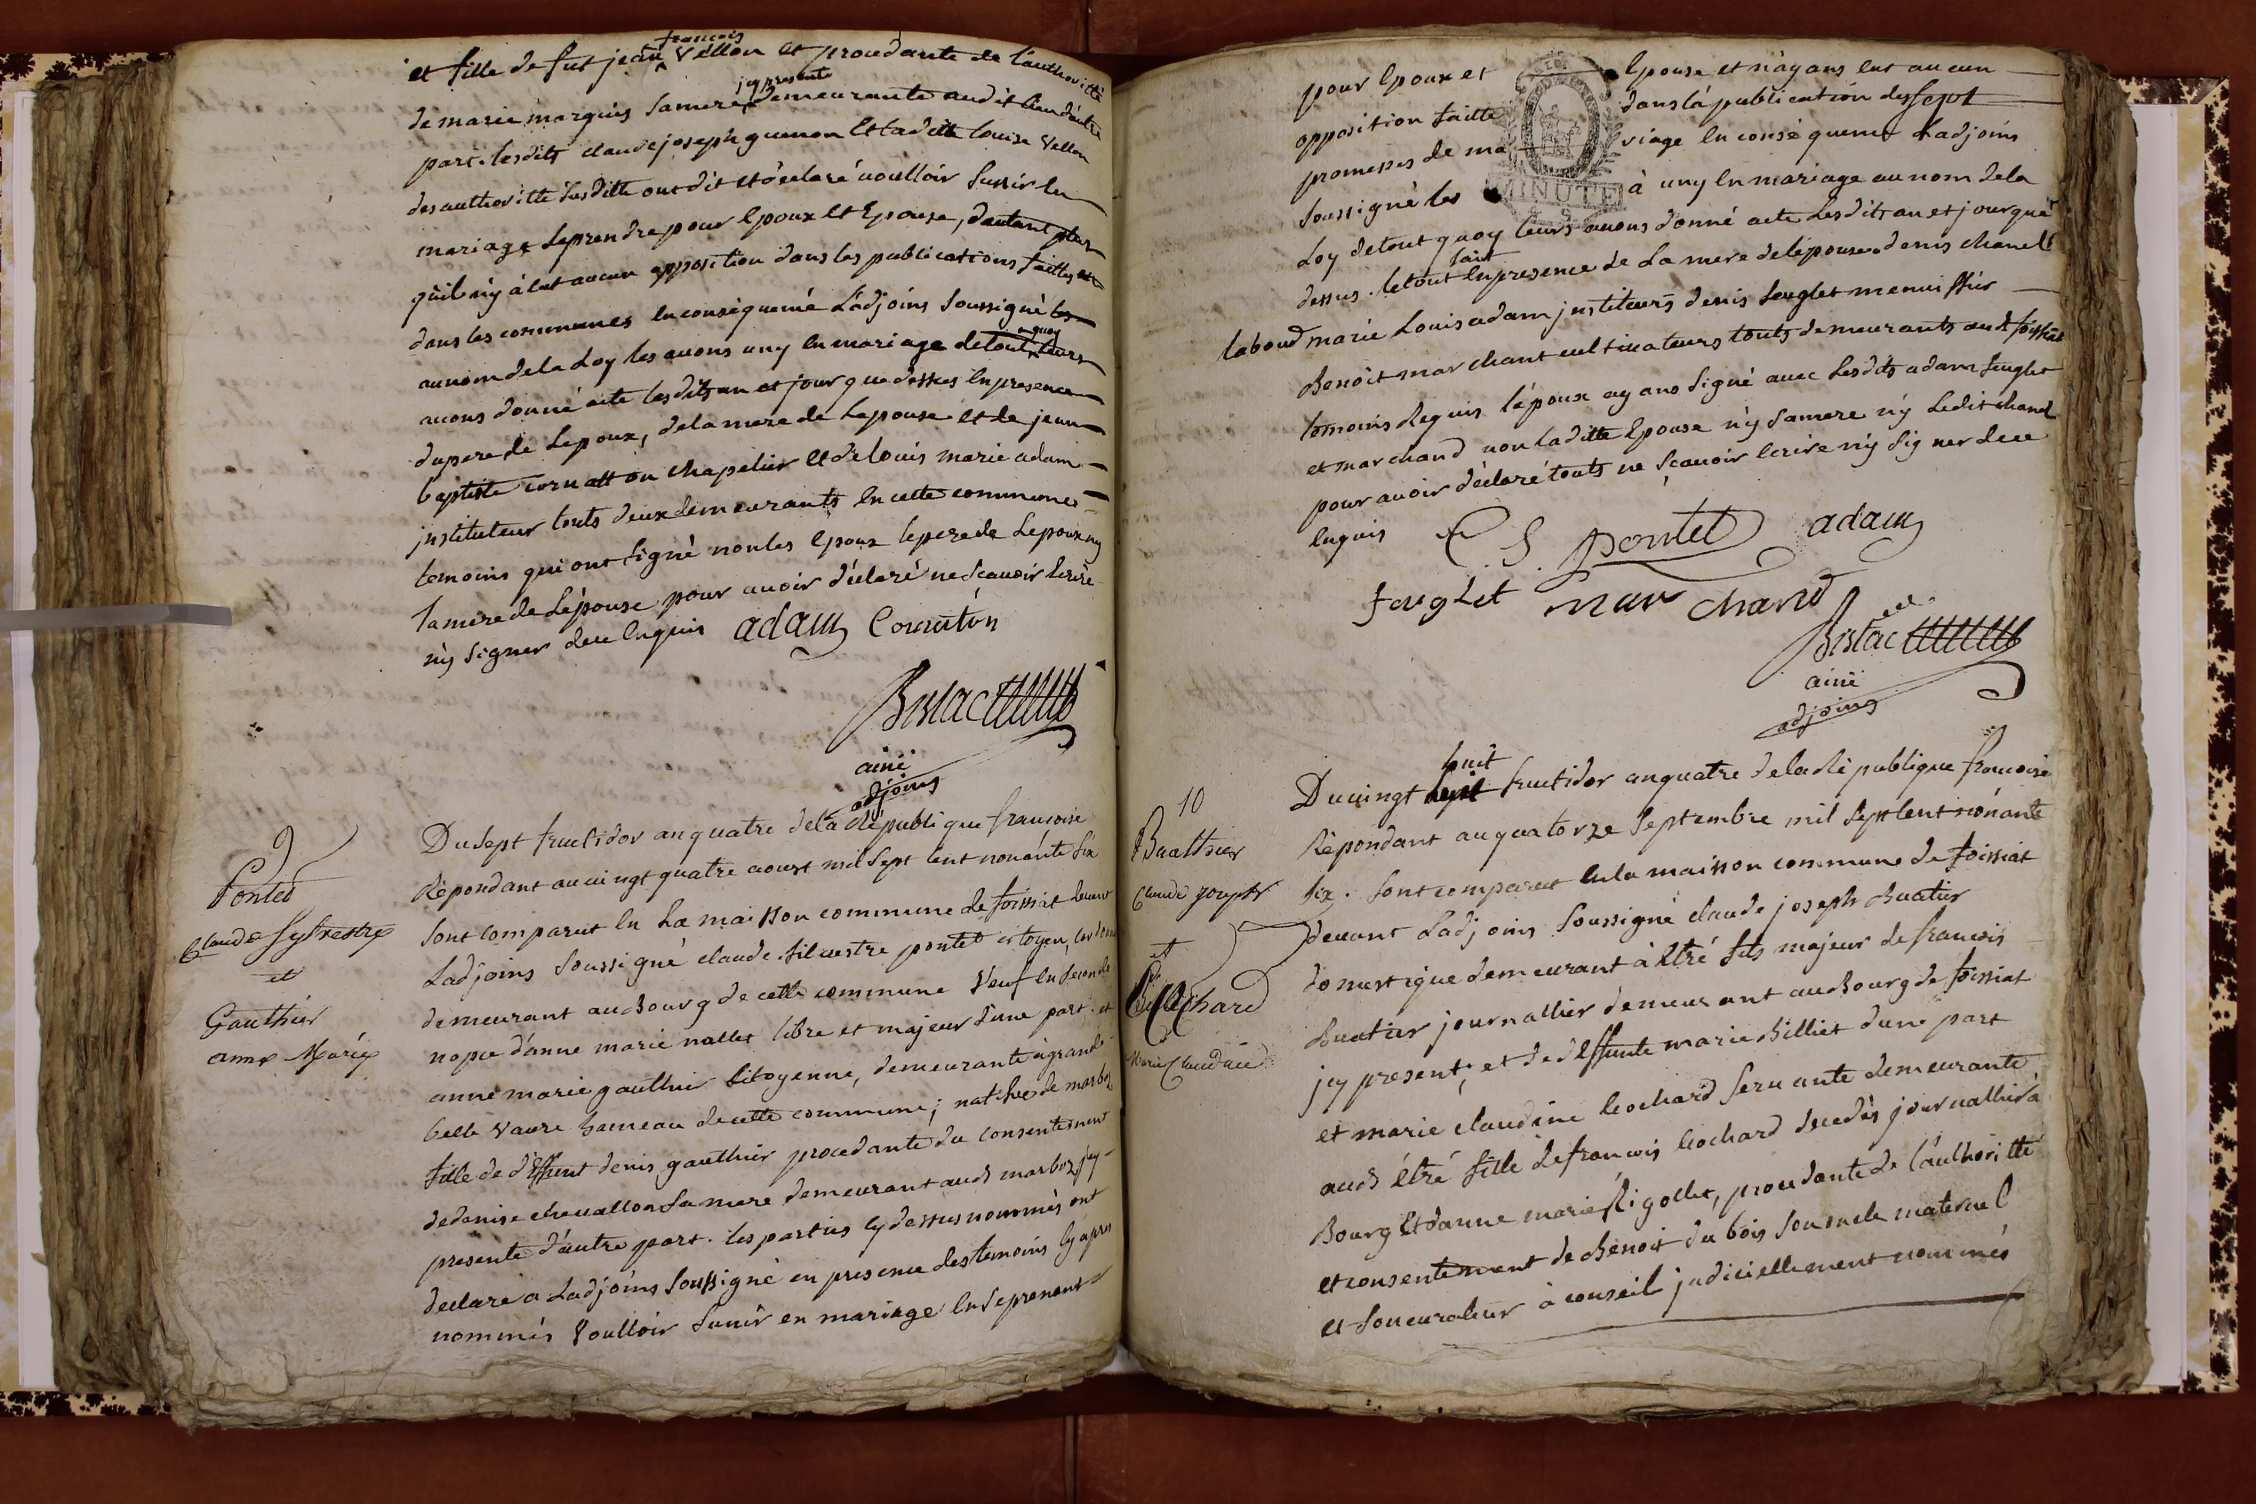 et fille de fut jean françois Vellon et procedante de l'authoritté
de marie marguis sa mere jcy presente demeurante audit lieu d'autre
part. lesdits claude joseph guenon et ladette louise Vellon
des authoritté susditte ont dit et déclaré voulloir sunir en
mariage se prendre pour Epoux et Epouse, d'autant plus
qùil n'y à eut aucun opposition dans les publications faittes
dans les communes en conséquence L'adjoins soussigné les
au nom de la Loy les avons uny en mariage de tout quoy leurs
avons donné acte lesdits an et jour que dessus en presence
du pere de Lepoux, de la mere de Lepouse et de jean
baptiste cornatton chapelier et de louis marie adam
jnstituteur touts deux demeurants en cette commune
temoins qui ont signé non les époux le pere de Lepoux ny
la mere de Lépouse pour avoir déclaré ne scavoir écrire
n'y signer de ce enquis adam Cornaton
ainé
adjoins
9
Pontet
Claude Sylvestre
et
Gauthier
anne Marie
Du sept fructidor an quatre de la République francoise
Répondant au vingt quatre aoust mil sept cent nonante six
sont comparut en La maisson commune de foissiat devant
Ladjoins soussigné claude silvestre pontet citoyen,
demeurant au Bourg de cette commune Veuf en seconde
nopce d'anne marie nallet libre et majeur d'une part. et
anne marie gauthier citoyenne, demeurante à grande
belle vavre hameau de cette commune; native de marboz
fille de déffunt denis gauthier procedante du consentement
de denise chevallon sa mere demeurant aud marboz jcy
presente d'autre part. les parties cy dessus nommés ont
declaré a Ladjoins soussigné en presence des temoins cy apres
nommés Voulloir sunir en mariage en se prenent
pour Epoux et Epouse et n'ayans eut aucun
opposition faitte dans la publication des sept
promesses de ma riage en conséquence Ladjoins
soussigné les à uny en mariage au nom de la
MINUTE
Loy de tout quoy leurs avons donné acte Les dits an et jour que
dessus. le tout fait en presence de La mere de lépouse denis chanel
laboud marie Louis adam jnstituteurs denis feuglet menuissier
Benoit marchant cultivateurs touts demeurants aud foissiat
temoins Requis l'époux ayans signé avec Lesdits adam feuglet
et marchand non laditte Epouse n'y sa mere n'y Ledit chanel
pour avoir déclaré touts ne sçavoir écrire n'y signer de ce
enquis C. S. Pontet adam
feuglet marchand
ainé
adjoins
10
Buathier
Claude joseph
et
Cochard
Marie Claudine
Du vingt huit sept fructidor an quatre de la République francoise
Répondant au quatorze septembre mil sept cent nonante
six. sont comparut en la maisson commune de foissiat
devant Ladjoins soussigné claude joseph Buatier
domestique demeurant à étré fils majeur de francois
Buatier journallier demeurant au Bourg de foissiat
jcy present; et de déffunte marie Billiet d'une part
et marie claudine Cochard servante demeurante
aud étré fille de francois Cochard decedés journallier à
Bourg et d'anne marie Rigollet, procedante de l'authoritté
et consentement de Benoit du bois son oncle maternel
et son curateur à conseil judiciellement nommés